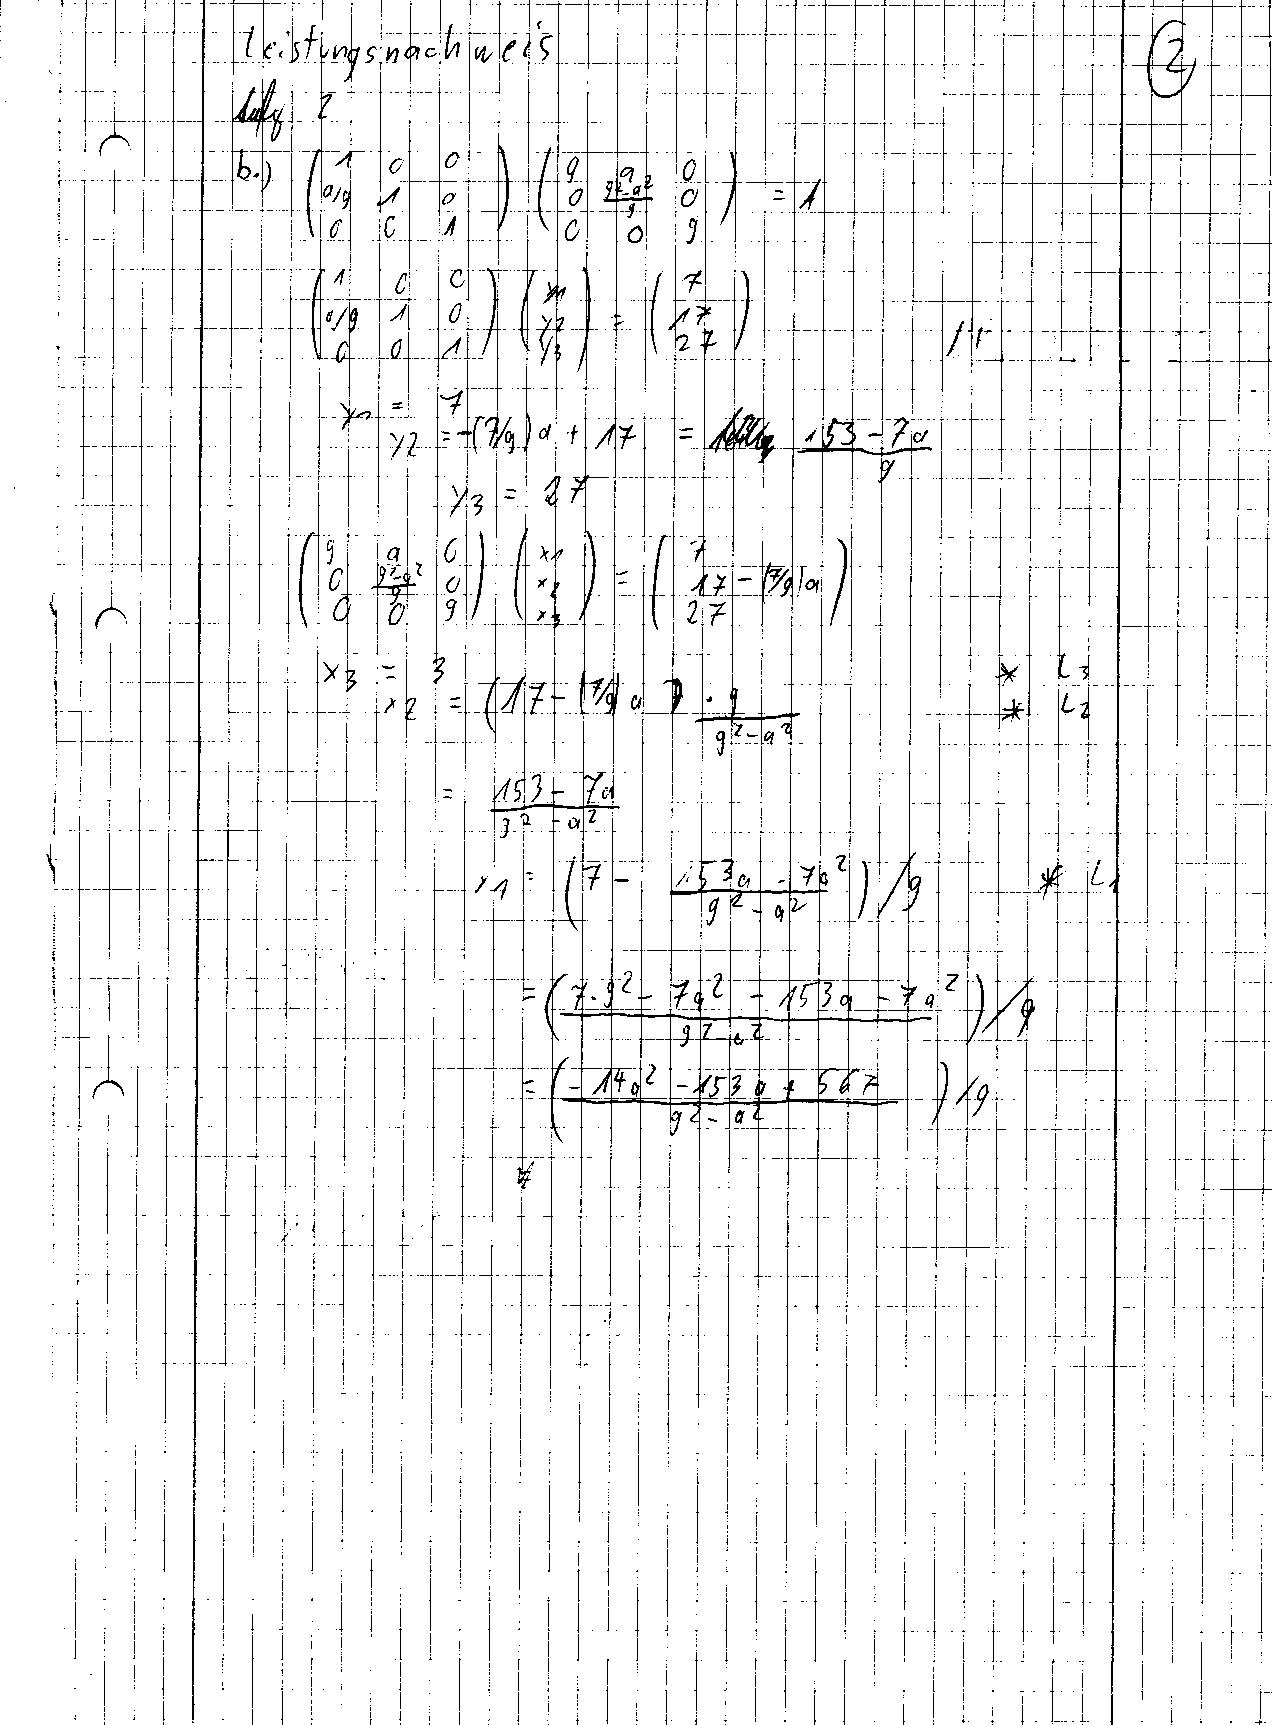 Leistungsnachweis
2
Aufg 2
b.) ( 1 0 0 ; a/9 1 0 ; 0 0 1 ) ( 9 a 0 ; 0 (9²-a²)/9 0 ; 0 0 9 ) = 1
( 1 0 0 ; a/9 1 0 ; 0 0 1 ) ( y1 ; y2 ; y3 ) = ( 7 ; 17 ; 27 )
y1 = 7
y2 = -(7/9)a + 17 = (153 - 7a)/9
y3 = 27
( 9 a 0 ; 0 (9²-a²)/9 0 ; 0 0 9 ) ( x1 ; x2 ; x3 ) = ( 7 ; 17 - (7/9)a ; 27 )
x3 = 3 * L3
x2 = (17 - (7/9)a) · 9/(9²-a²) * L2
= (153 - 7a)/(9²-a²)
x1 = (7 - (153a - 7a²)/(9²-a²))/9 * L1
= ((7·9² - 7a² - 153a - 7a²)/(9²-a²))/9
= ((-14a² - 153a + 567)/(9²-a²))/9